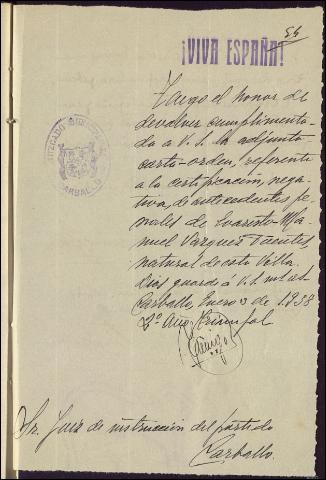 54
¡VIVA ESPAÑA!
Tengo el honor de
devolver cumplimenta-
da a V. S. la adjunta
carta-orden, referente
a la certificación, nega-
tiva, de antecedentes pe-
nales de Evaristo Ma-
nuel Varques Fuentes
natural de esta Villa.
Dios guarde a V. S. m. a.
Carballo, Enero 3 de 1938
2º Año Triunfal
JUZGADO
CARBALLO
Sr. Juez de instrucción del partido
Carballo